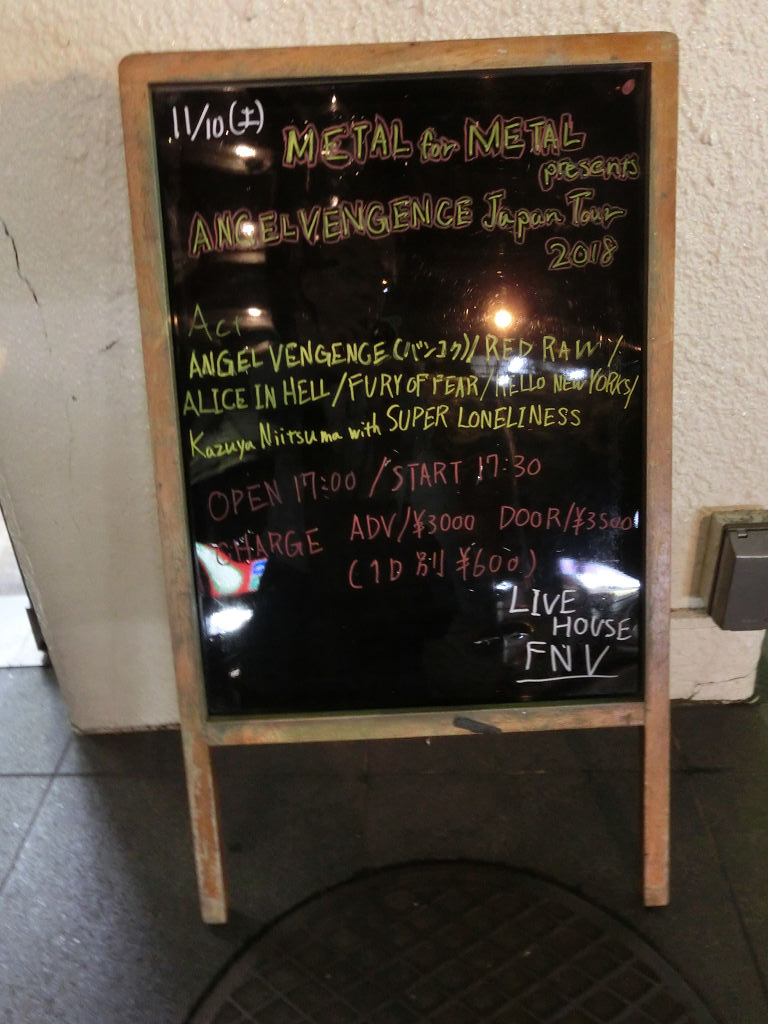 11/10.(土)
METAL for METAL
presents
ANGEL VENGENCE Japan Tour
2018
Act
ANGEL VENGENCE(バンコク)/RED RAW/
ALICE IN HELL/FURY OF FEAR/HELLO NEW YORKS/
Kazuya Niitsuma with SUPER LONELINESS
OPEN 17:00 /START 17:30
CHARGE ADV/¥3000 DOOR/¥3500
(1D別¥600)
LIVE
HOUSE
FNV